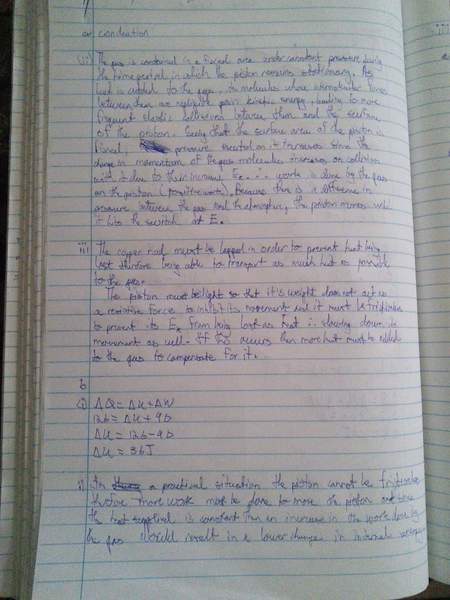 a) conduction
ii) The gas is contained in a fixed area under constant pressure during
the time period in which the piston remains stationary. As
heat is added to the gas, its molecules whose intermolecular forces
between them are negligible gain kinetic energy, leading to more
frequent elastic collisions between them and the surface
of the piston. Seeing that the surface area of the piston is
fixed, pressure exerted on it increases since the
change in momentum of the gas molecules increases on collision
with it due to their increased Ek. ∴ work is done by the gas
on the piston (positive work). Because there is a difference in
pressure between the gas and the atmosphere, the piston moves until
it hits the switch at E.
iii The copper rod must be lagged in order to prevent heat being
lost therefore being able to transport as much heat as possible
to the gas.
The piston must be light so that it's weight does not act as
a resistive force to inhibit its movement and it must be frictionless
to prevent its Ek from being lost as heat ∴ slowing down its
movement as well. If this occurs then more heat must be added
to the gas to compensate for it.
b
i) ΔQ = ΔU + ΔW
126 = ΔU + 90
ΔU = 126 - 90
ΔU = 36J
ii) In a practical situation the piston cannot be frictionless
therefore more work must be done to move the piston and since
the heat supplied is constant then an increase in the work done by
the gas would result in a lower change in internal energy